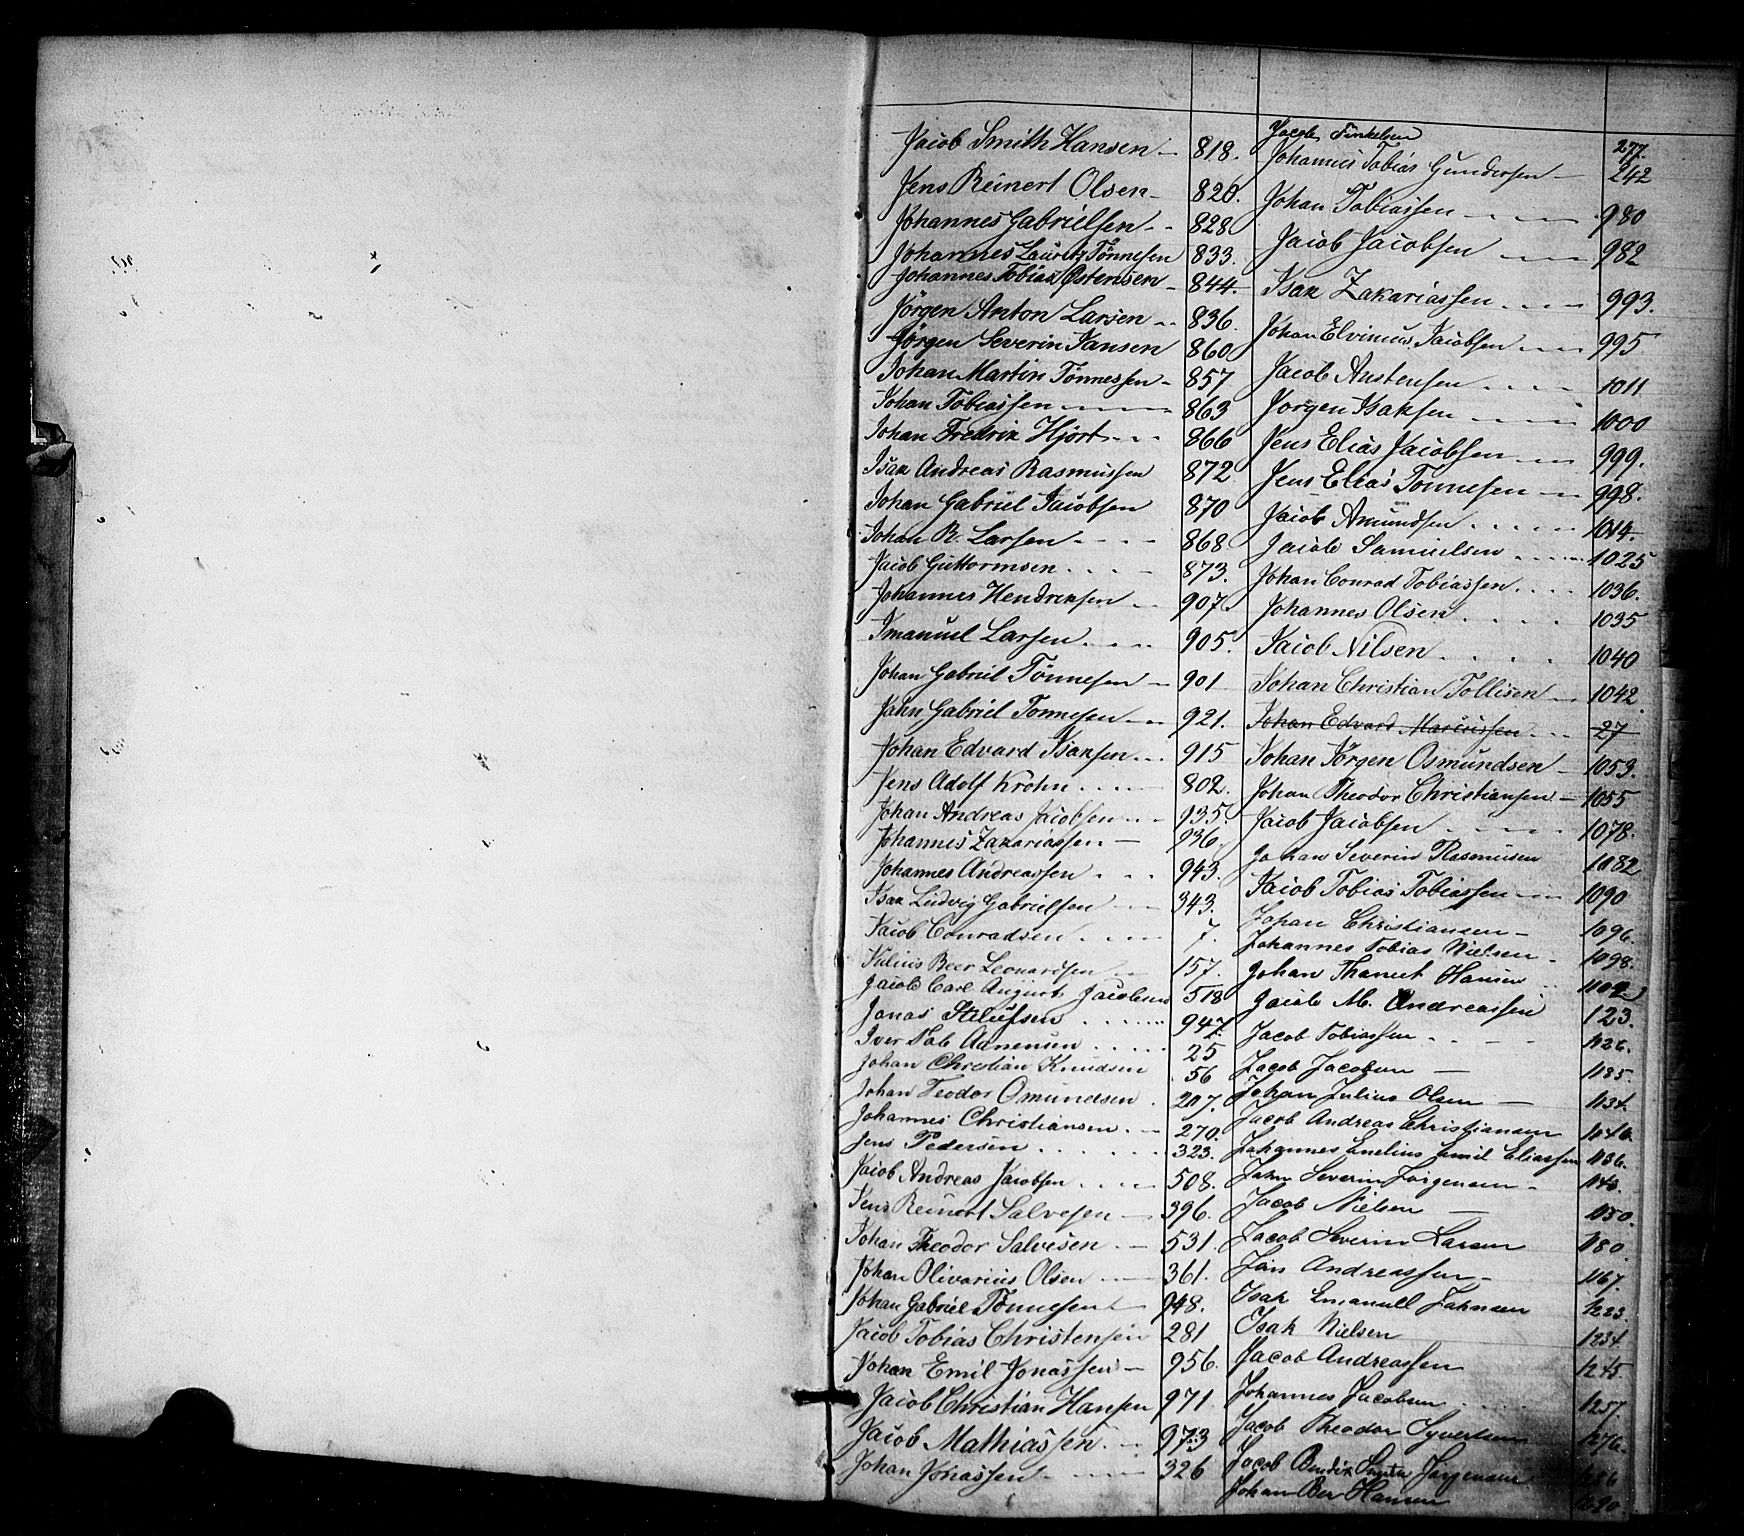 Jacob Smith Hansen 818.
Jens Reinert Olsen 826.
Johannes Gabrielsen 828
Johannes Lauritz Tönnesen 833.
Johannes Tobias Østensen 844.
Jörgen Anton Larsen 836.
Jörgen Severin Jansen 860
Johan Martin Tönnessen 857
Johan Tobiassen 863
Johan Fredrik Hjort 866
Isak Andreas Rasmussen 872
Johan Gabriel Jacobsen 870
Johan R. Larsen 868
Jacob Guttormsen 873.
Johannes Hendriksen 907.
Imanuel Larsen 905.
Johan Gabriel Tönnesen 901
Jahn Gabriel Tönnesen 921.
Johan Edvard Isaksen 915
Jens Adolf Krohn 802.
Johan Andreas Jacobsen 935.
Johannes Zakariassen 936.
Johannes Andreassen 943.
Isak Ludvig Gabrielsen 343.
Jacob Conradsen 7.
Julius Beer Leonardsen 157.
Jacob Carl August Jacobsen 518
Jonas Stilufsen 947.
Iver Aanensen 25
Johan Christian Knudsen 56
Johan Teodor Omundsen 207.
Johannes Christiansen 270.
Jens Pedersen 323.
Jacob Andreas Jacobsen 508.
Jens Reinert Salvesen 396.
Johan Theodor Salvesen 531.
Johan Olivarius Olsen 361.
Johan Gabriel Tönnesen 948.
Jacob Tobias Christensen 281
Johan Emil Jonassen 956.
Jacob Christian Hansen 971.
Jacob Mathiassen 973
Johan Jonassen 326
Jacob Finkelsen 277.
Johannes Tobias Gundersen 242
Johan Tobiassen 980
Jacob Jacobsen 982
Isak Zakariassen 993.
Johan Elvinius Jacobsen 995
Jacob Austensen 1011
Jorgen Isaksen 1000
Jens Elias Jacobsen 999.
Jens Elias Tonnesen 998.
Jacob Amundsen 1014.
Jacob Samuelsen 1025
Johan Conrad Tobiassen 1036.
Johannes Olsen 1035
Jacob Nilsen 1040
Johan Christian Tollisen 1042.
Johan Edvard Marcussen 27
Johan Jörgen Osmundsen 1053.
Johan Theodor Christiansen 1055
Jacob Jacobsen 1078.
Johan Severin Rasmusen 1082
Jacob Tobias Tobiassen 1090
Johan Christiansen 1096
Johannes Tobias Nielsen 1098.
Johan Hansen 1102
Jacob M. Andreassen 123.
Jacob Tobiassen 1126.
Jacob Jacobsen 1135.
Johan Julius Olsen 1134.
Jacob Andreas Christiansen 1146.
Johannes Emil Eliassen 1136.
Jahn Severin Jorgensen 1143.
Jacob Nielsen 1150.
Jacob Severin Larsen 1180.
Jan Andreassen 1167.
Isak Emanuell Jahnsen 1223.
Isak Nielsen 1234.
Jacob Andreassen 1245.
Johannes Jacobsen 1257.
Jacob Theodor Syvertsen 1276.
Jacob Bendix Jorgensen 1286
Johan Ber Hansen 1290.